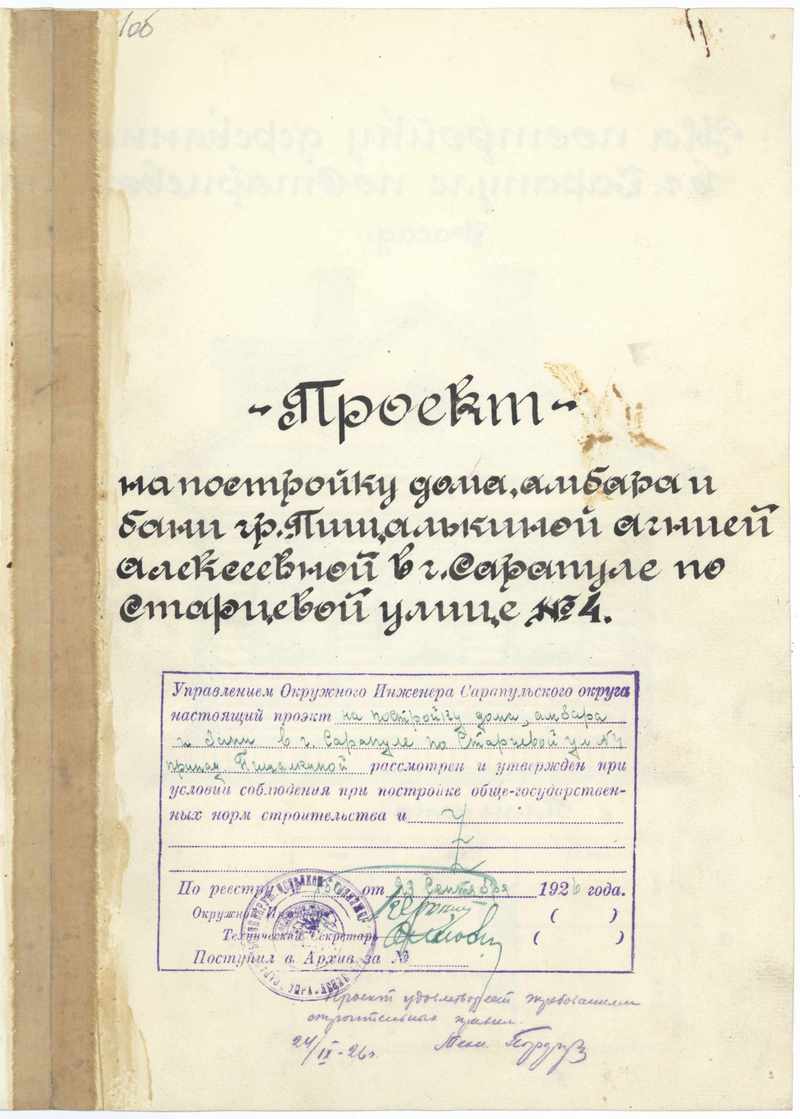 106
-Проект-
на постройку дома, амбара и
бани гр. Пищалькиной Агнией
Алексеевной в г. Сарапуле по
Старцевой улице № 4.
Управлением Окружного Инженера Сарапульского округа
настоящий проэкт на постройку дома, амбара
и бани в г. Сарапуле по Старцевой ул № 4
Пищалкиной рассмотрен и утвержден при
условии соблюдения при постройке обще-государствен-
ных норм строительства и
По реестру от 23 Сентября 1926 года.
Окружной Инженер ( )
Технический Секретарь ( )
Поступил в Архив за №
Проект удовлетворяет требованиям
строительных правил.
24/IX-26 г. Техн.